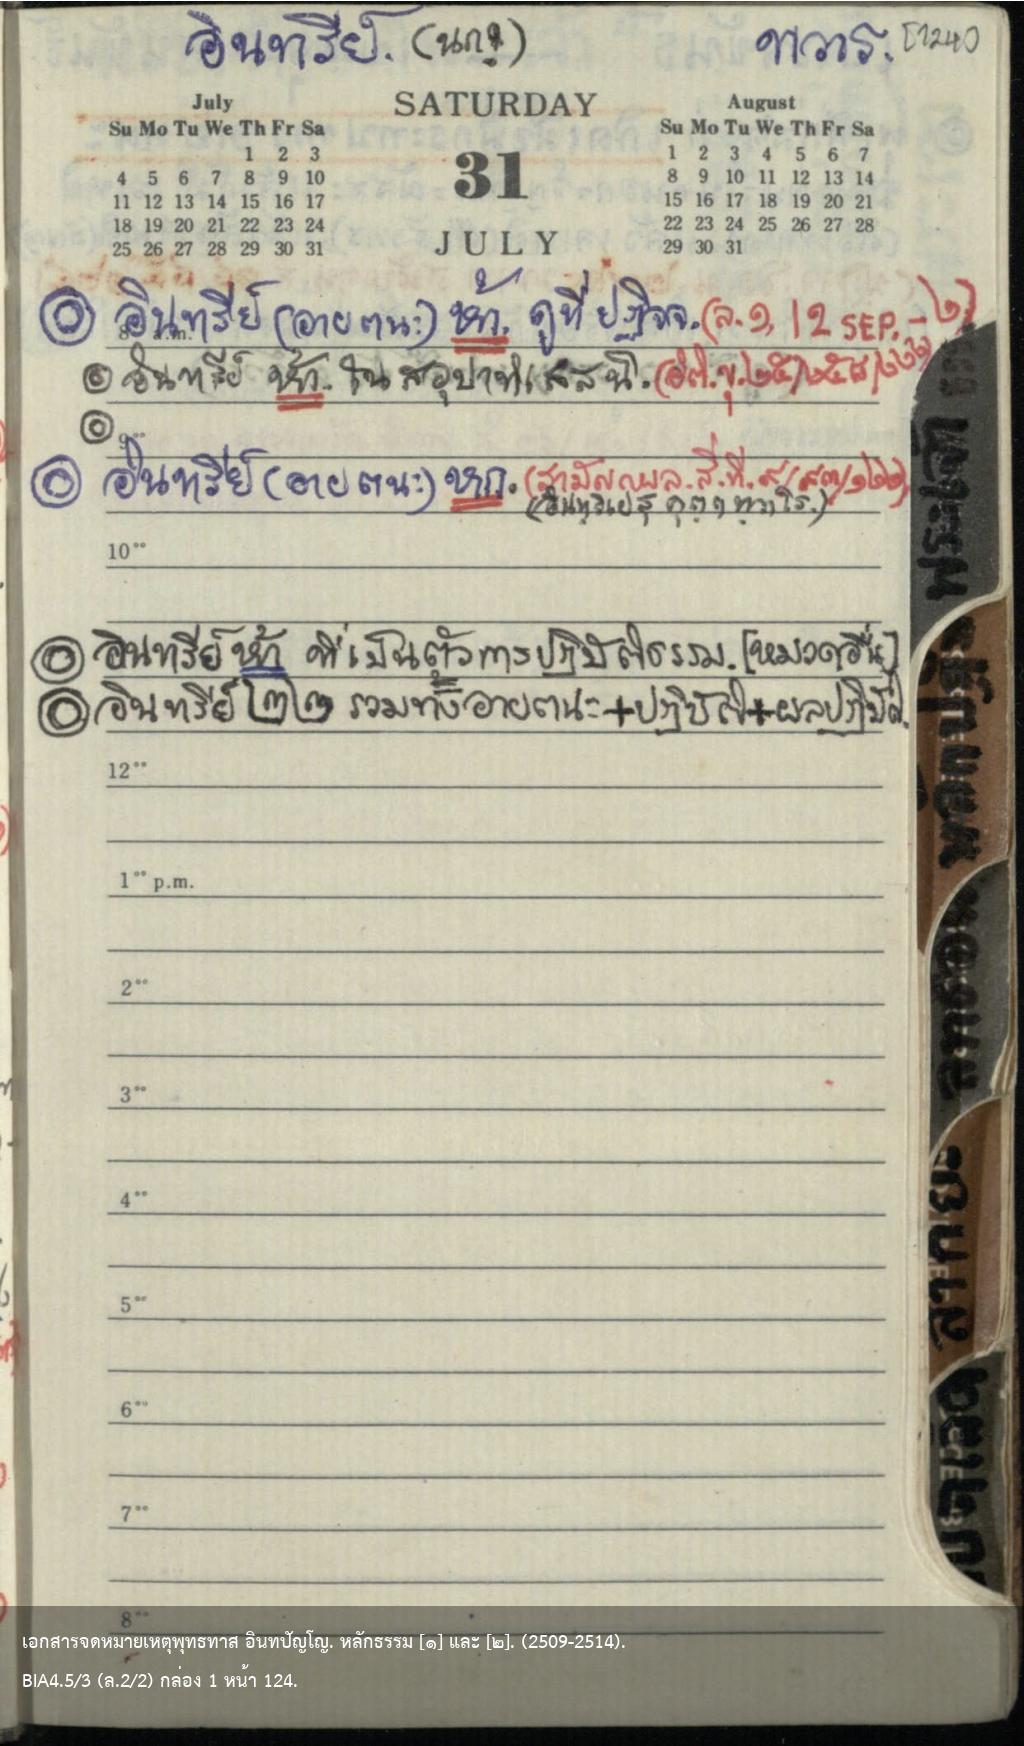 อินทรีย์. ทวาร. [124]
July SATURDAY August
Su Mo Tu We Th Fr Sa Su Mo Tu We Th Fr Sa
1 2 3 31 1 2 3 4 5 6 7
4 5 6 7 8 9 10 8 9 10 11 12 13 14
11 12 13 14 15 16 17 15 16 17 18 19 20 21
18 19 20 21 22 23 24 22 23 24 25 26 27 28
25 26 27 28 29 30 31 JULY 29 30 31
อินทรีย์ (อายตนะ) ห้า. ดูที่ ปฏิจจ. (ล.๑, 12 SEP.-๒)
8 a.m.
อินทรีย์ ห้า. ใน สอุปาทิเสสนิ. (อิติ.ขุ.๒๕/๒๕๘/๒๒๒)
9
อินทรีย์ (อายตนะ) หก. (สามัญญผล.สี.ที.๙/๙๓/๑๒๒)
(อินฺทฺริเยสุ คุตฺตทฺวาโร.)
10
อินทรีย์ ห้า ที่เป็นตัวการปฏิบัติธรรม. [หมวดอื่น]
อินทรีย์ ๒๒ รวมทั้งอายตนะ+ปฏิบัติ+ผลปฏิบัติ.
12
1 p.m.
2
3
4
5
6
7
8
พระเจ้า
ลาบวช
เอกสารจดหมายเหตุพุทธทาส อินทปัญโญ. หลักธรรม [๑] และ [๒]. (2509-2514).
BIA4.5/3 (ล.2/2) กล่อง 1 หน้า 124.